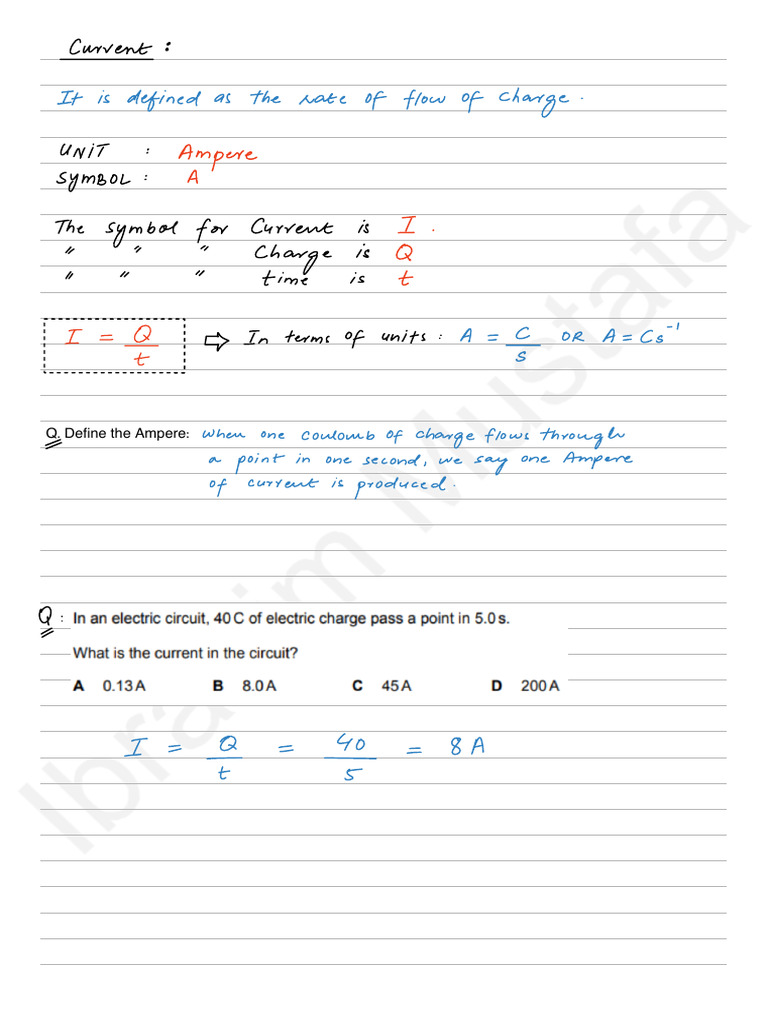 Current :
It is defined as the rate of flow of charge.
UNIT : Ampere
SYMBOL : A
The symbol for Current is I.
" " " Charge is Q
" " " time is t
I = Q/t ⇒ In terms of units : A = C/s OR A = Cs⁻¹
Q. Define the Ampere: When one coulomb of charge flows through
a point in one second, we say one Ampere
of current is produced.
Q : In an electric circuit, 40 C of electric charge pass a point in 5.0 s.
What is the current in the circuit?
A 0.13 A B 8.0 A C 45 A D 200 A
I = Q/t = 40/5 = 8 A
Ibrahim Mustafa